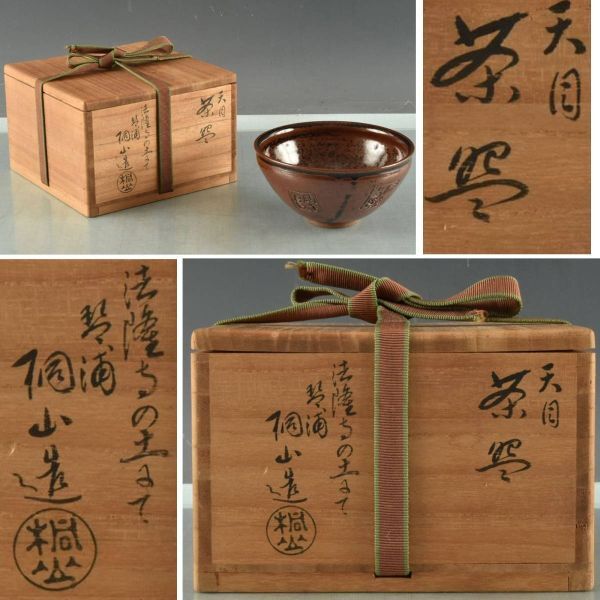 天目
茶盌
法隆寺の土にて
琴浦
桐山造
桐山
天目
茶盌
法隆寺の土にて
琴浦
桐山造
桐山
天目
茶盌
法隆寺の土にて
琴浦
桐山造
桐山